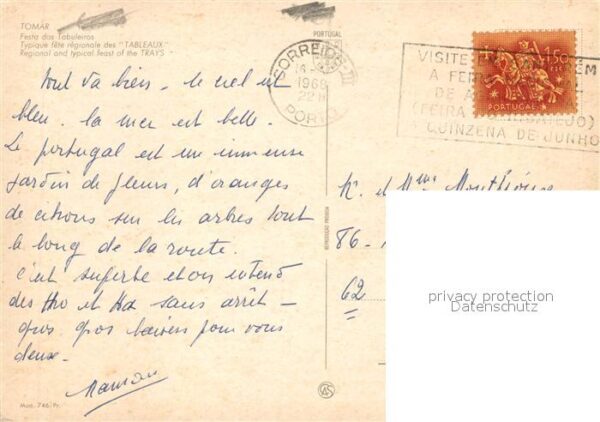 TOMAR
Festa dos Tabuleiros
Typique fête régionale des "TABLEAUX"
Regional and typical feast of the TRAYS
PORTUGAL
CORREIOS
1968
22H
PORTO
VISITE EM
A FEIRA
DE
(FEIRA
QUINZENA DE JUNHO
1$50
PORTUGAL
Tout va bien. le ciel est
bleu. la mer est belle.
Le portugal est un immense
jardin de fleurs, d'oranges
de citrons sur les arbres tout
le long de la route.
c'est superbe et on entend
des Ho et Ha sans arrêt -
gros gros baisers pour vous
deux.
Maman
REPRODUÇÃO PROIBIDA
M. et Mme
86-
62
privacy protection
Datenschutz
Mod. 746 Pr.